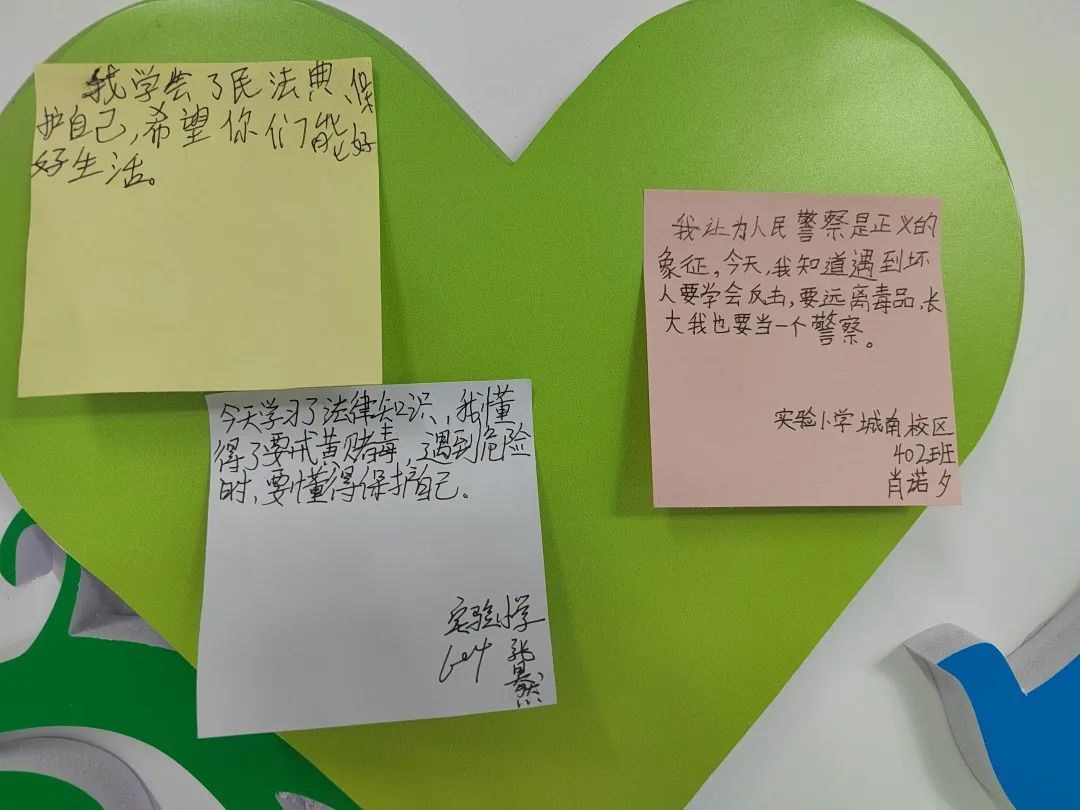 我学会了民法典、保
护自己,希望你们能好
好生活。
今天学习了法律知识,我懂
得了要戒黄赌毒,遇到危险
时,要懂得保护自己。
实验小学
604 张
我认为人民警察是正义的
象征,今天,我知道遇到坏
人要学会反击,要远离毒品,长
大我也要当一个警察。
实验小学城南校区
402班
肖诺夕